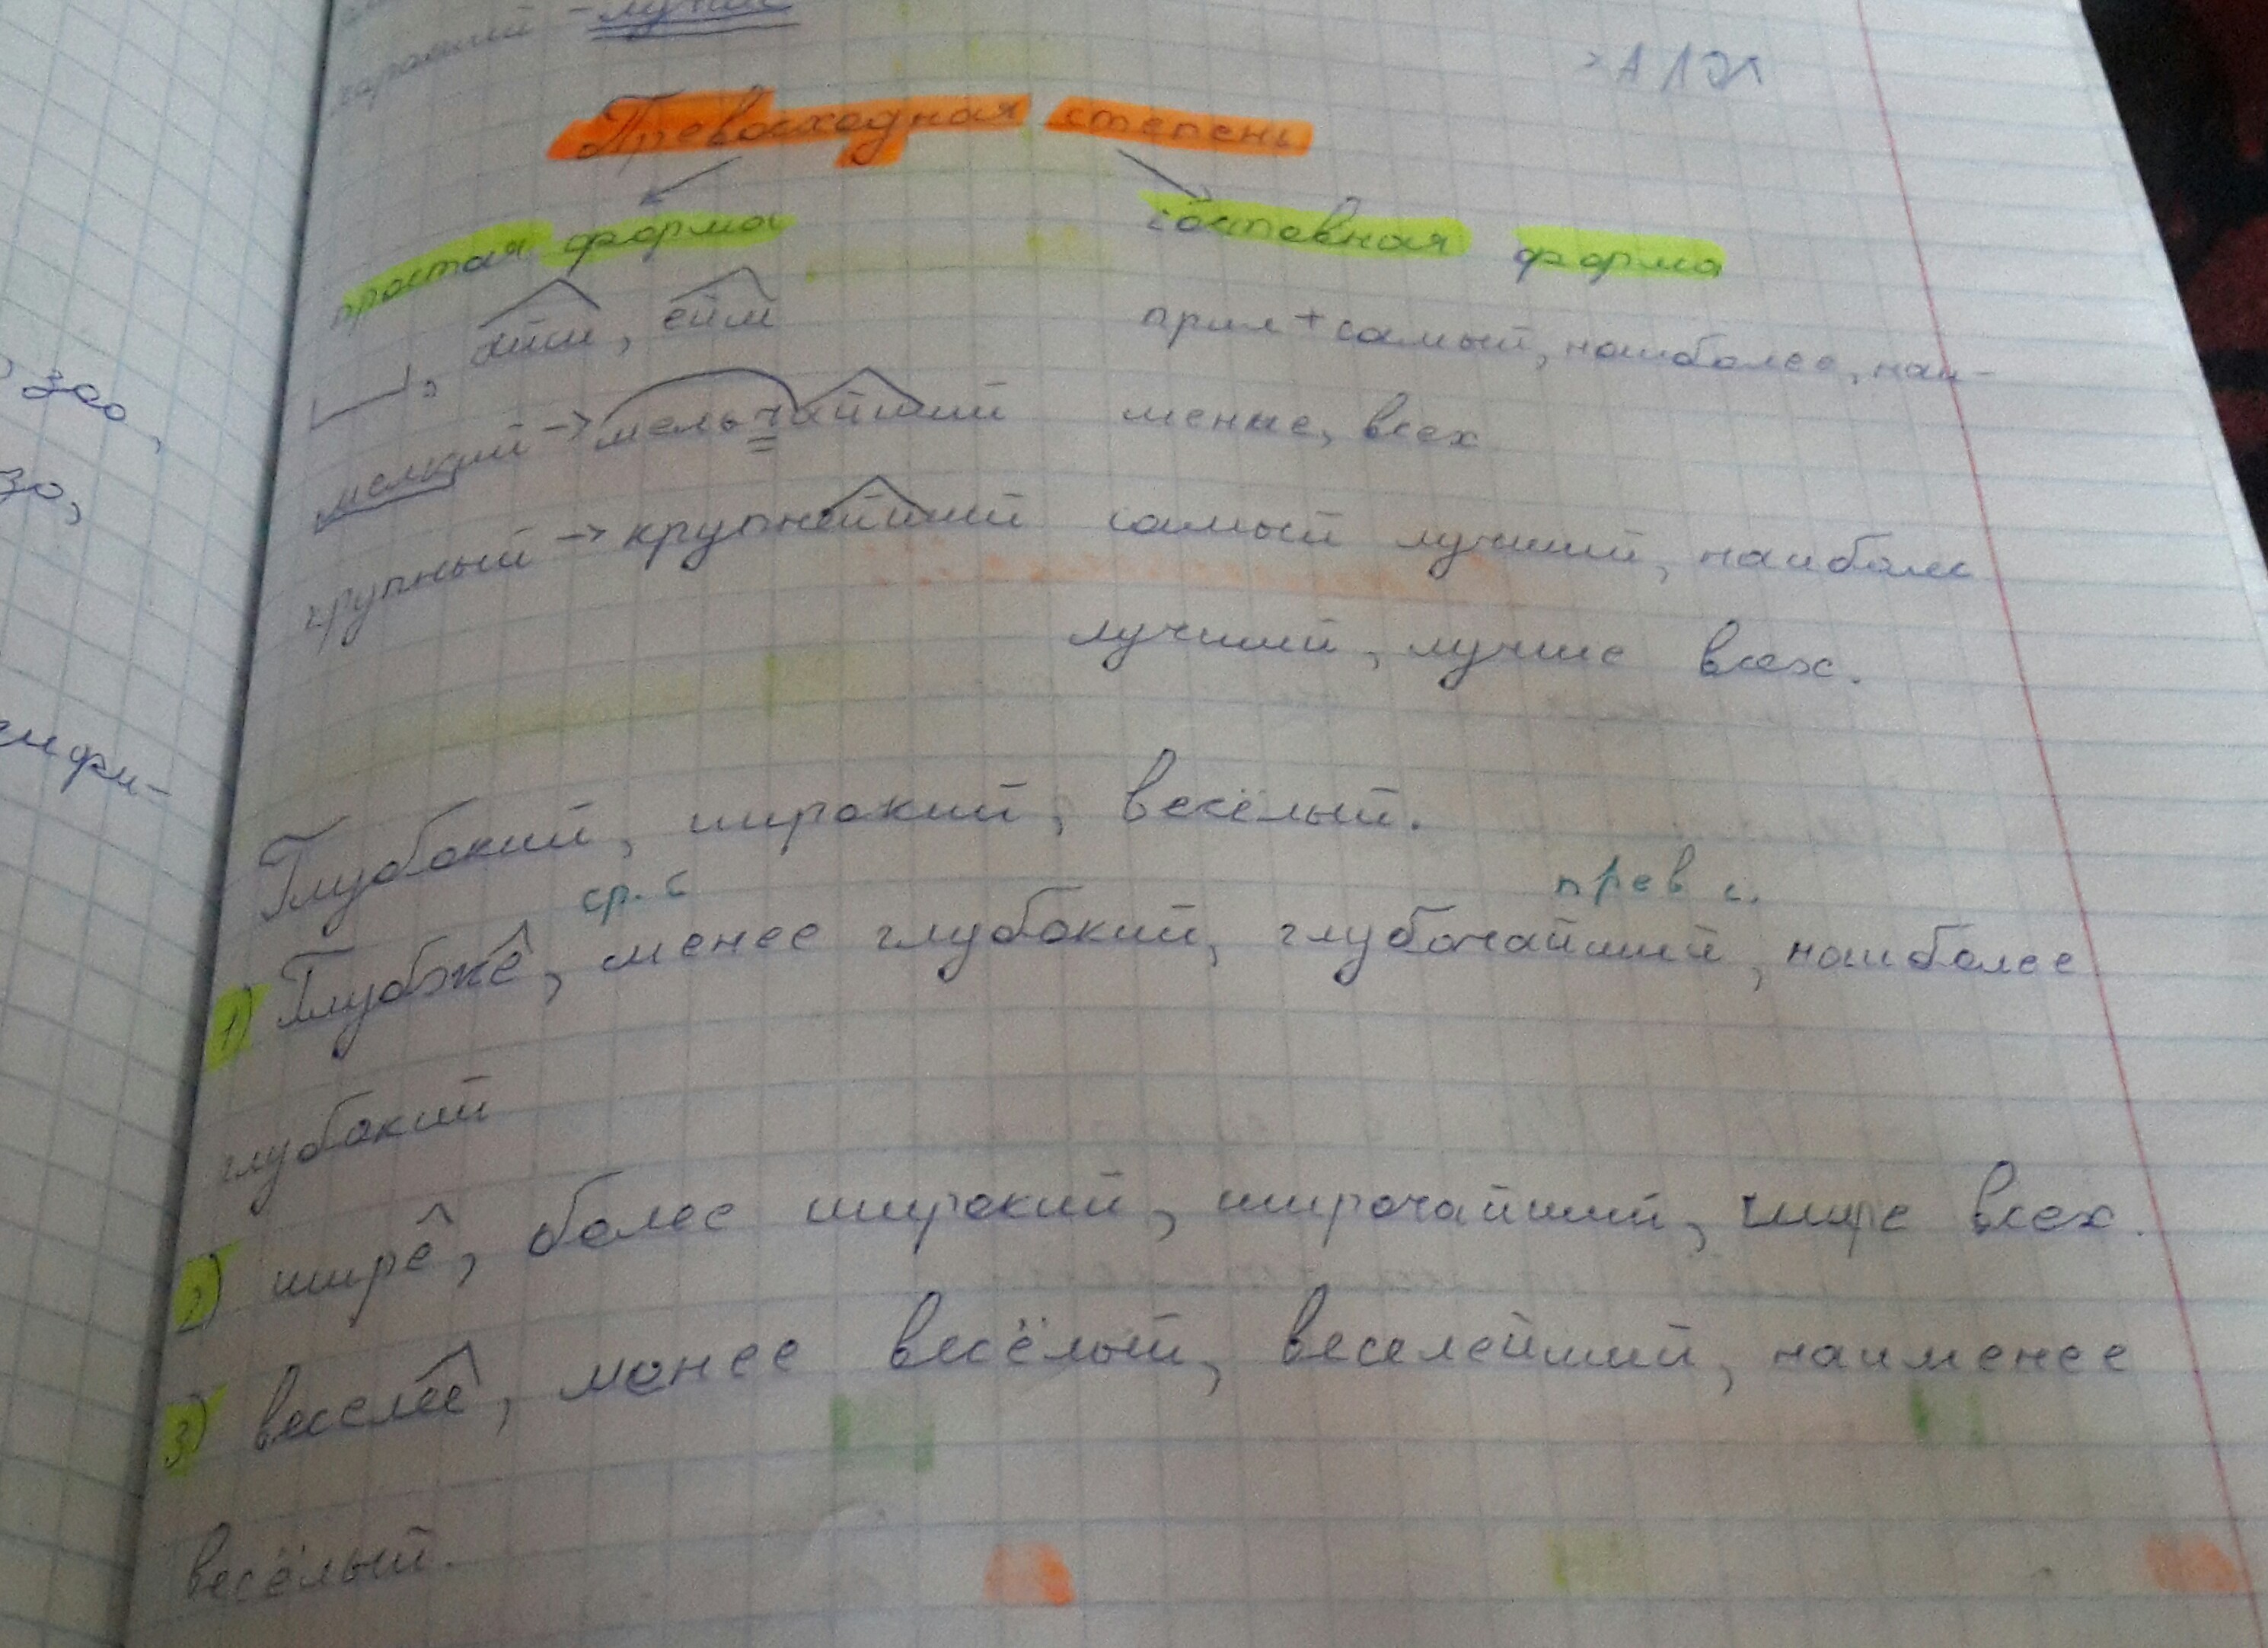 хороший - лучше
Превосходная степень
простая форма составная форма
айш, ейш прил + самый, наиболее, наи-
мелкий → мельчайший менее, всех
крупный → крупнейший самый лучший, наиболее
лучший, лучше всех.
Глубокий, широкий, весёлый.
ср. с прев с.
1) Глубже, менее глубокий, глубочайший, наиболее
глубокий
2) шире, более широкий, широчайший, шире всех.
3) веселее, менее весёлый, веселейший, наименее
весёлый.
зао,
зо,